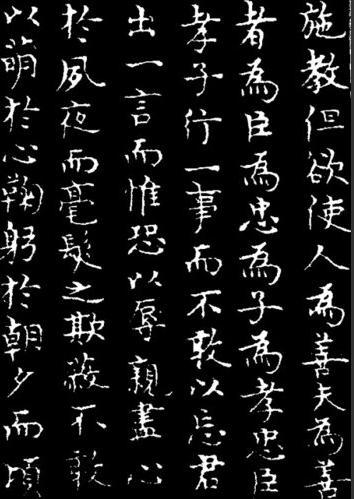 施教但欲使人為善夫為善
者為臣為忠為子為孝忠臣
孝子行一事而不敢以忘君
出一言而惟恐以辱親盡心
於夙夜而毫髮之欺蔽不敢
以萌於心鞠躬於朝夕而頃